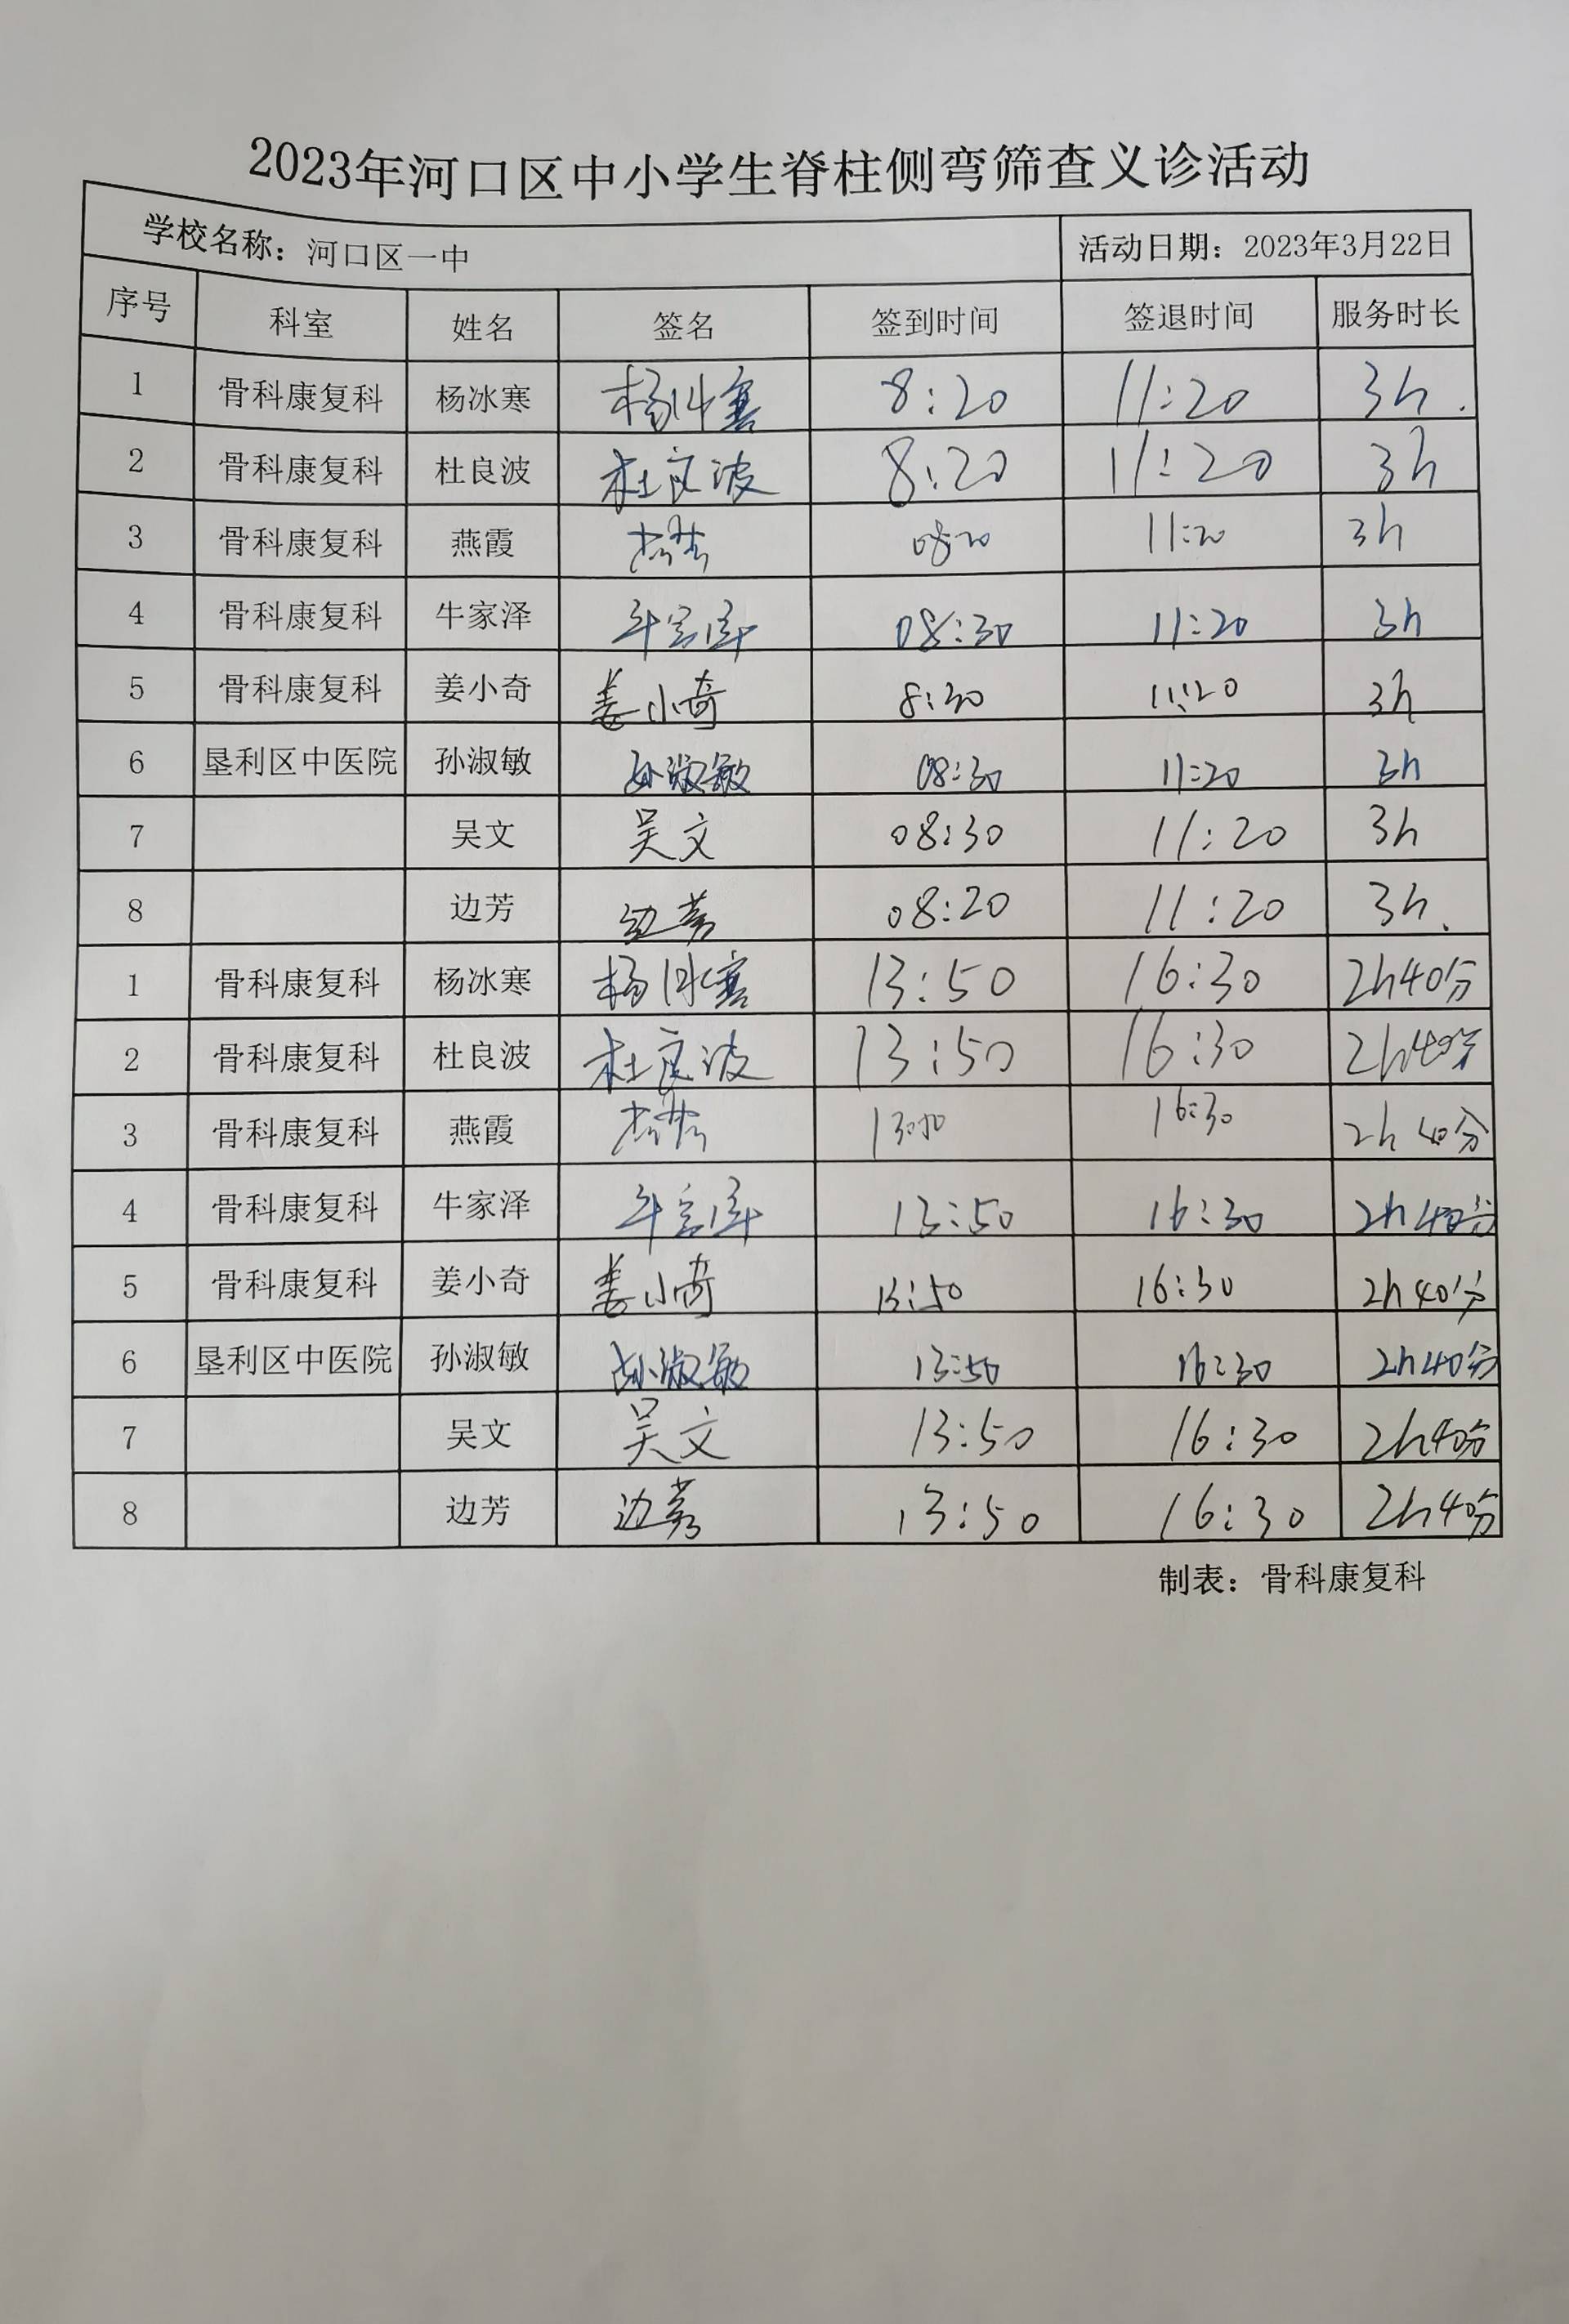 2023年河口区中小学生脊柱侧弯筛查义诊活动
学校名称：河口区一中 活动日期：2023年3月22日
序号 科室 姓名 签名 签到时间 签退时间 服务时长
1 骨科康复科 杨冰寒 杨冰寒 8:20 11:20 3h.
2 骨科康复科 杜良波 杜良波 8:20 11:20 3h
3 骨科康复科 燕霞 0820 11:20 3h
4 骨科康复科 牛家泽 牛家泽 08:30 11:20 3h
5 骨科康复科 姜小奇 姜小奇 8:30 11:20 3h
6 垦利区中医院 孙淑敏 孙淑敏 08:30 11:20 3h
7 吴文 吴文 08:30 11:20 3h
8 边芳 边芳 08:20 11:20 3h.
1 骨科康复科 杨冰寒 杨冰寒 13:50 16:30 2h40分
2 骨科康复科 杜良波 杜良波 13:50 16:30 2h40分
3 骨科康复科 燕霞 16:30 2h40分
4 骨科康复科 牛家泽 牛家泽 13:50 16:30 2h40分
5 骨科康复科 姜小奇 姜小奇 13:50 16:30 2h40分
6 垦利区中医院 孙淑敏 孙淑敏 13:50 16:30 2h40分
7 吴文 吴文 13:50 16:30 2h40分
8 边芳 边芳 13:50 16:30 2h40分
制表：骨科康复科